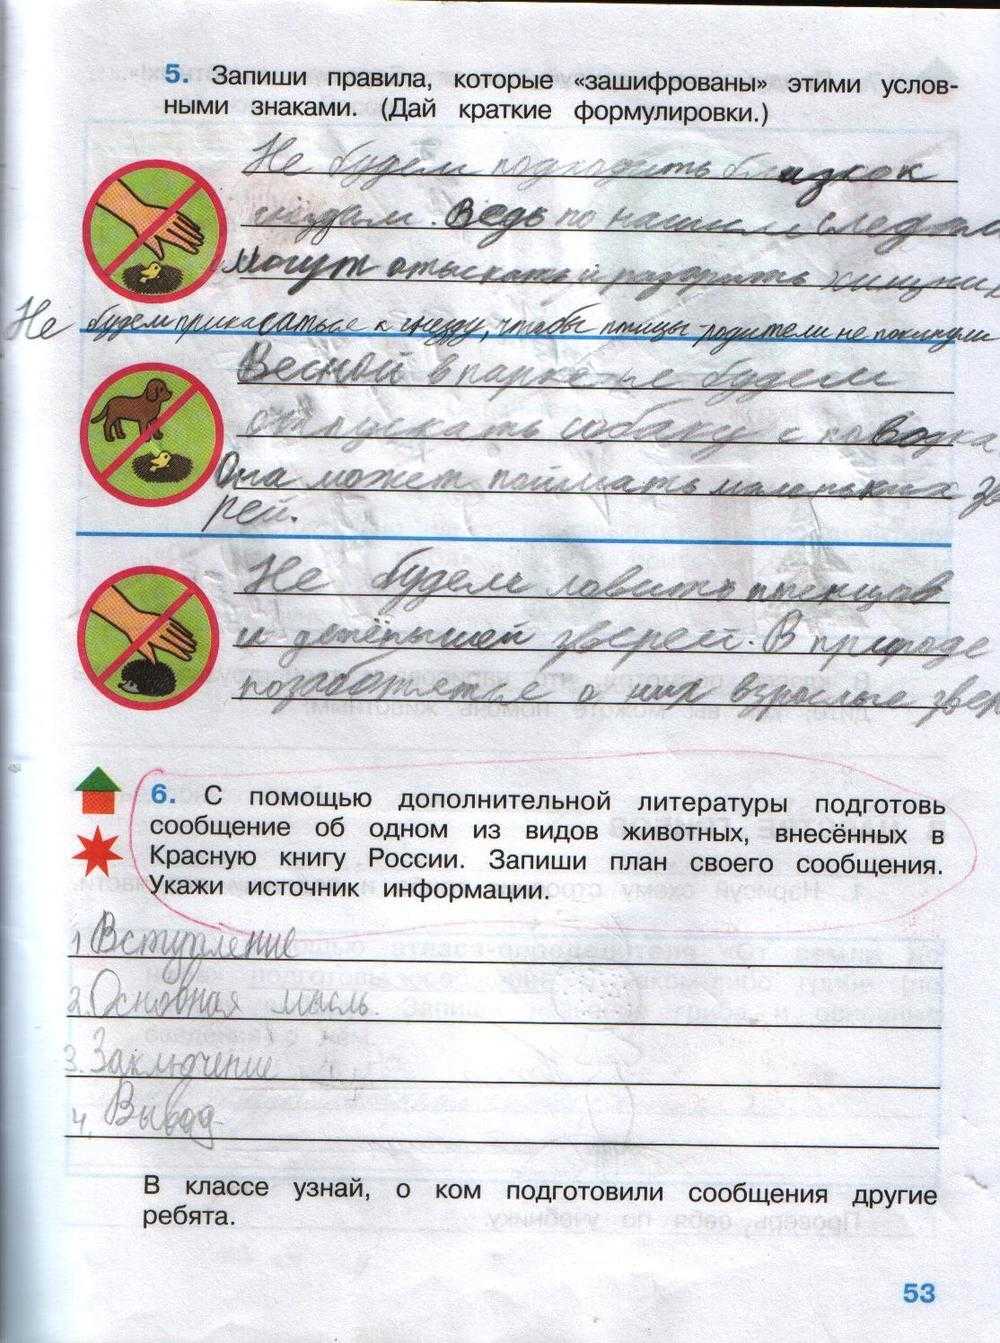 5. Запиши правила, которые «зашифрованы» этими услов-
ными знаками. (Дай краткие формулировки.)
Не будем подходить близко к
гнёздам. Ведь по нашим следам
могут отыскать и разорить хищник
Не будем прикасаться к гнезду, чтобы птицы родители не покинули
Весной в парке не будем
отпускать собаку с поводка
Она может поймать маленьких зве
рей.
Не будем ловить птенцов
и детёнышей зверей. В природе
позаботятся о них взрослые звер
6. С помощью дополнительной литературы подготовь
сообщение об одном из видов животных, внесённых в
Красную книгу России. Запиши план своего сообщения.
Укажи источник информации.
1. Вступление
2. Основная мысль
3. Заключение
4. Вывод
В классе узнай, о ком подготовили сообщения другие
ребята.
53